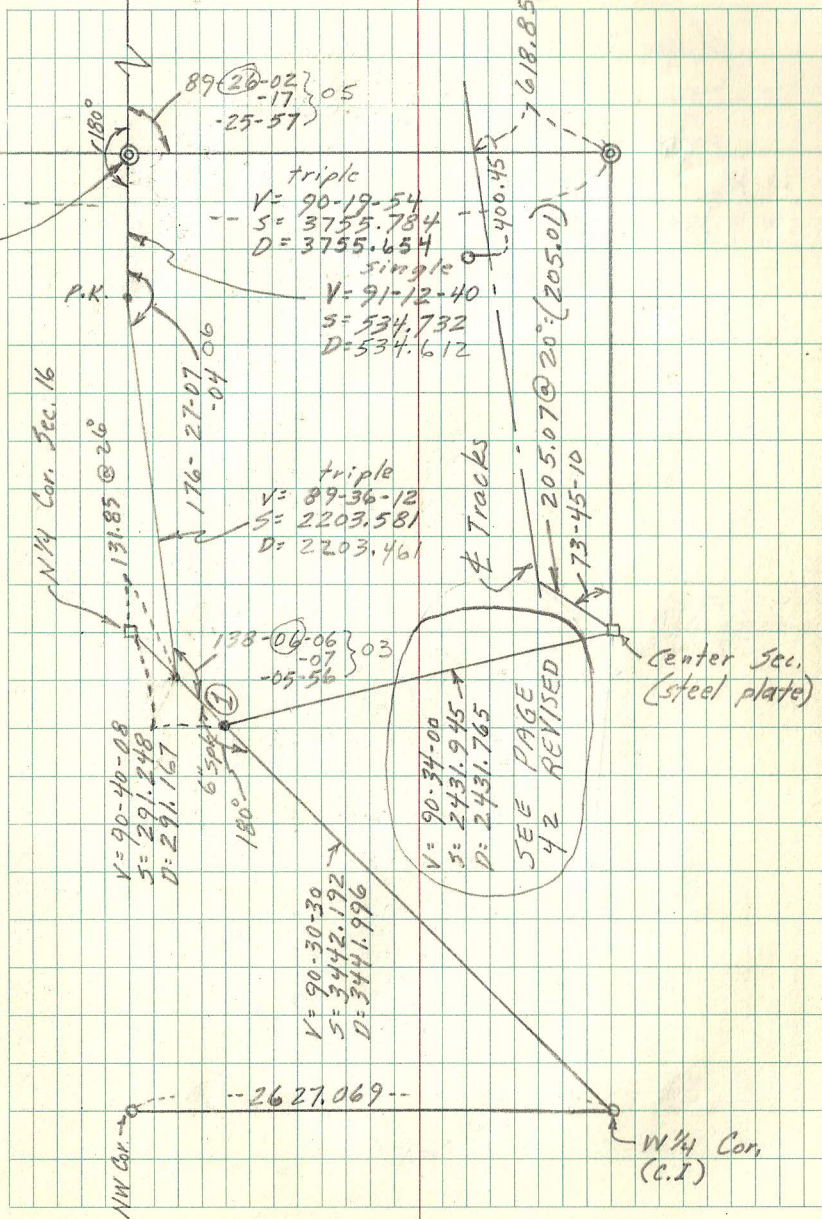 618.85
89-26-02
-17
-25-57
} 05
180°
triple
V= 90-19-54
S= 3755.784
D= 3755.654
single
V= 91-12-40
S= 534.732
D= 534.612
400.45
P.K.
N 1/4 Cor. Sec. 16
131.85 @ 26°
176-27-07
-04
06
triple
V= 89-36-12
S= 2203.581
D= 2203.461
℄ Tracks
205.07 @ 20° (205.01)
73-45-10
138-06-06
-07
-05-56
} 03
Center Sec.
(steel plate)
V= 90-40-08
S= 291.248
D= 291.167
6" Spk
1
180°
V= 90-34-00
S= 2431.945
D= 2431.765
SEE PAGE
42 REVISED
V= 90-30-30
S= 3442.192
D= 3441.996
--2627.069--
NW Cor.
W 1/4 Cor.
(C.I)